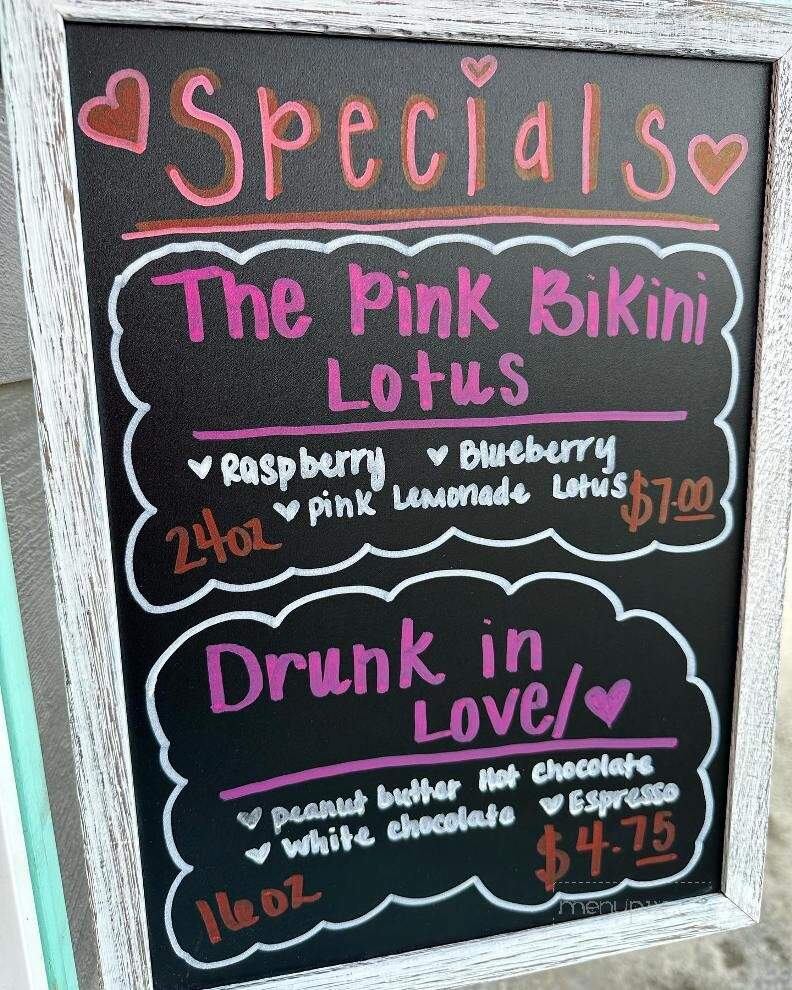 Specials
The Pink Bikini
Lotus
Raspberry Blueberry
pink Lemonade Lotus
24oz $7.00
Drunk in
Love/
peanut butter Hot chocolate
white chocolate Espresso
16oz $4.75